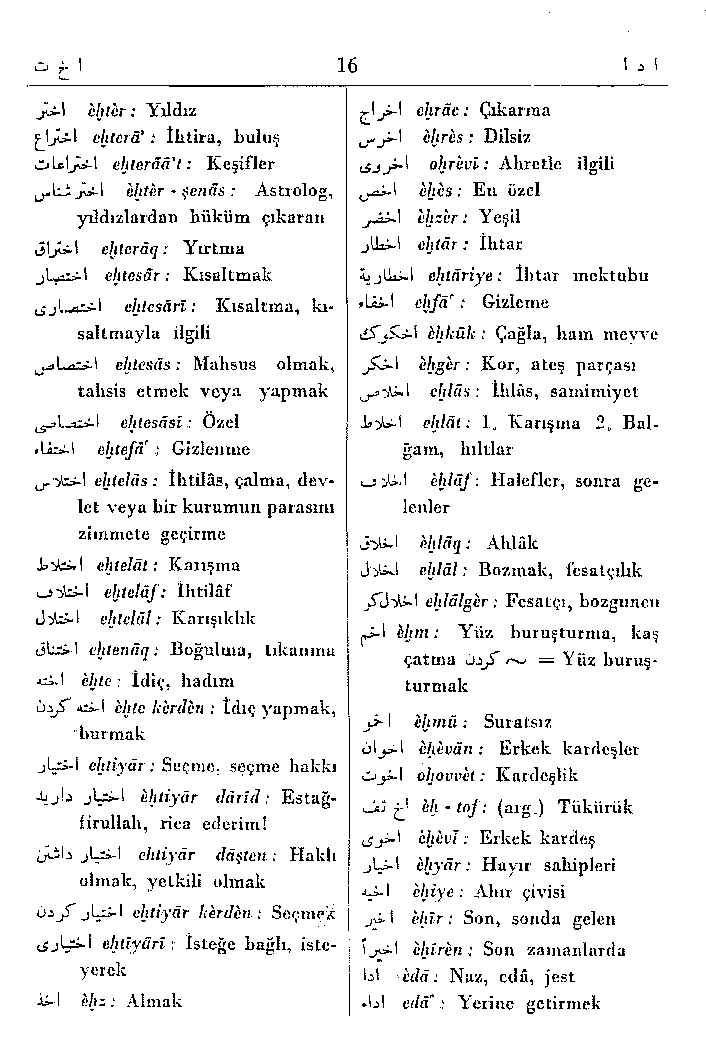 ا خ ت 16 ا د ا
اختر èḫtèr : Yıldız
اختراع eḫterā' : İhtira, buluş
اختراعات eḫterāā't : Keşifler
اختر شناس èḫtèr - şenās : Astrolog,
yıldızlardan hüküm çıkaran
اختراق eḫterāq : Yırtma
اختصار eḫtesār : Kısaltmak
اختصاری eḫtesārī : Kısaltma, kı-
saltmayla ilgili
اختصاص eḫtesās : Mahsus olmak,
tahsis etmek veya yapmak
اختصاصی eḫtesāsī : Özel
اختفاء eḫtefā' : Gizlenme
اختلاس eḫtelās : İhtilâs, çalma, dev-
let veya bir kurumun parasını
zimmete geçirme
اختلاط eḫtelāt : Karışma
اختلاف eḫtelāf : İhtilâf
اختلال eḫtelāl : Karışıklık
اختناق eḫtenāq : Boğulma, tıkanma
اخته èḫte : İdiç, hadım
اخته کردن èḫte kèrdèn : İdiç yapmak,
burmak
اختیار eḫtiyār : Seçme, seçme hakkı
اختیار دارید èḫtiyār dārīd : Estağ-
firullah, rica ederim!
اختیار داشتن eḫtiyār dāşten : Haklı
olmak, yetkili olmak
اختیار کردن eḫtiyār kèrdèn : Seçmek
اختیاری eḫtīyārī : İsteğe bağlı, iste-
yerek
اخذ èḫz : Almak
اخراج eḫrāc : Çıkarma
اخرس èḫrès : Dilsiz
اخروی oḫrèvī : Ahretle ilgili
اخص èḫès : En özel
اخضر èḫzèr : Yeşil
اخطار eḫtār : İhtar
اخطاریه eḫtāriye : İhtar mektubu
اخفاء eḫfā' : Gizleme
اخکوک èḫkūk : Çağla, ham meyve
اخگر èḫgèr : Kor, ateş parçası
اخلاص eḫlās : İhlâs, samimiyet
اخلاط eḫlāt : 1. Karışma 2. Bal-
ğam, hıltlar
اخلاف èḫlāf : Halefler, sonra ge-
lenler
اخلاق èḫlāq : Ahlâk
اخلال eḫlāl : Bozmak, fesatçılık
اخلالگر eḫlālgèr : Fesatçı, bozguncu
اخم èḫm : Yüz buruşturma, kaş
çatma ~ کردن = Yüz buruş-
turmak
اخمو èḫmū : Suratsız
اخوان èḫèvān : Erkek kardeşler
اخوت oḫovvèt : Kardeşlik
اخ تف èḫ - tof : (arg.) Tükürük
اخوی èḫèvī : Erkek kardeş
اخیار èḫyār : Hayır sahipleri
اخیه èḫiye : Ahır çivisi
اخیر èḫīr : Son, sonda gelen
اخیراً èḫīrèn : Son zamanlarda
ادا èdā : Naz, edâ, jest
اداء edā' : Yerine getirmek